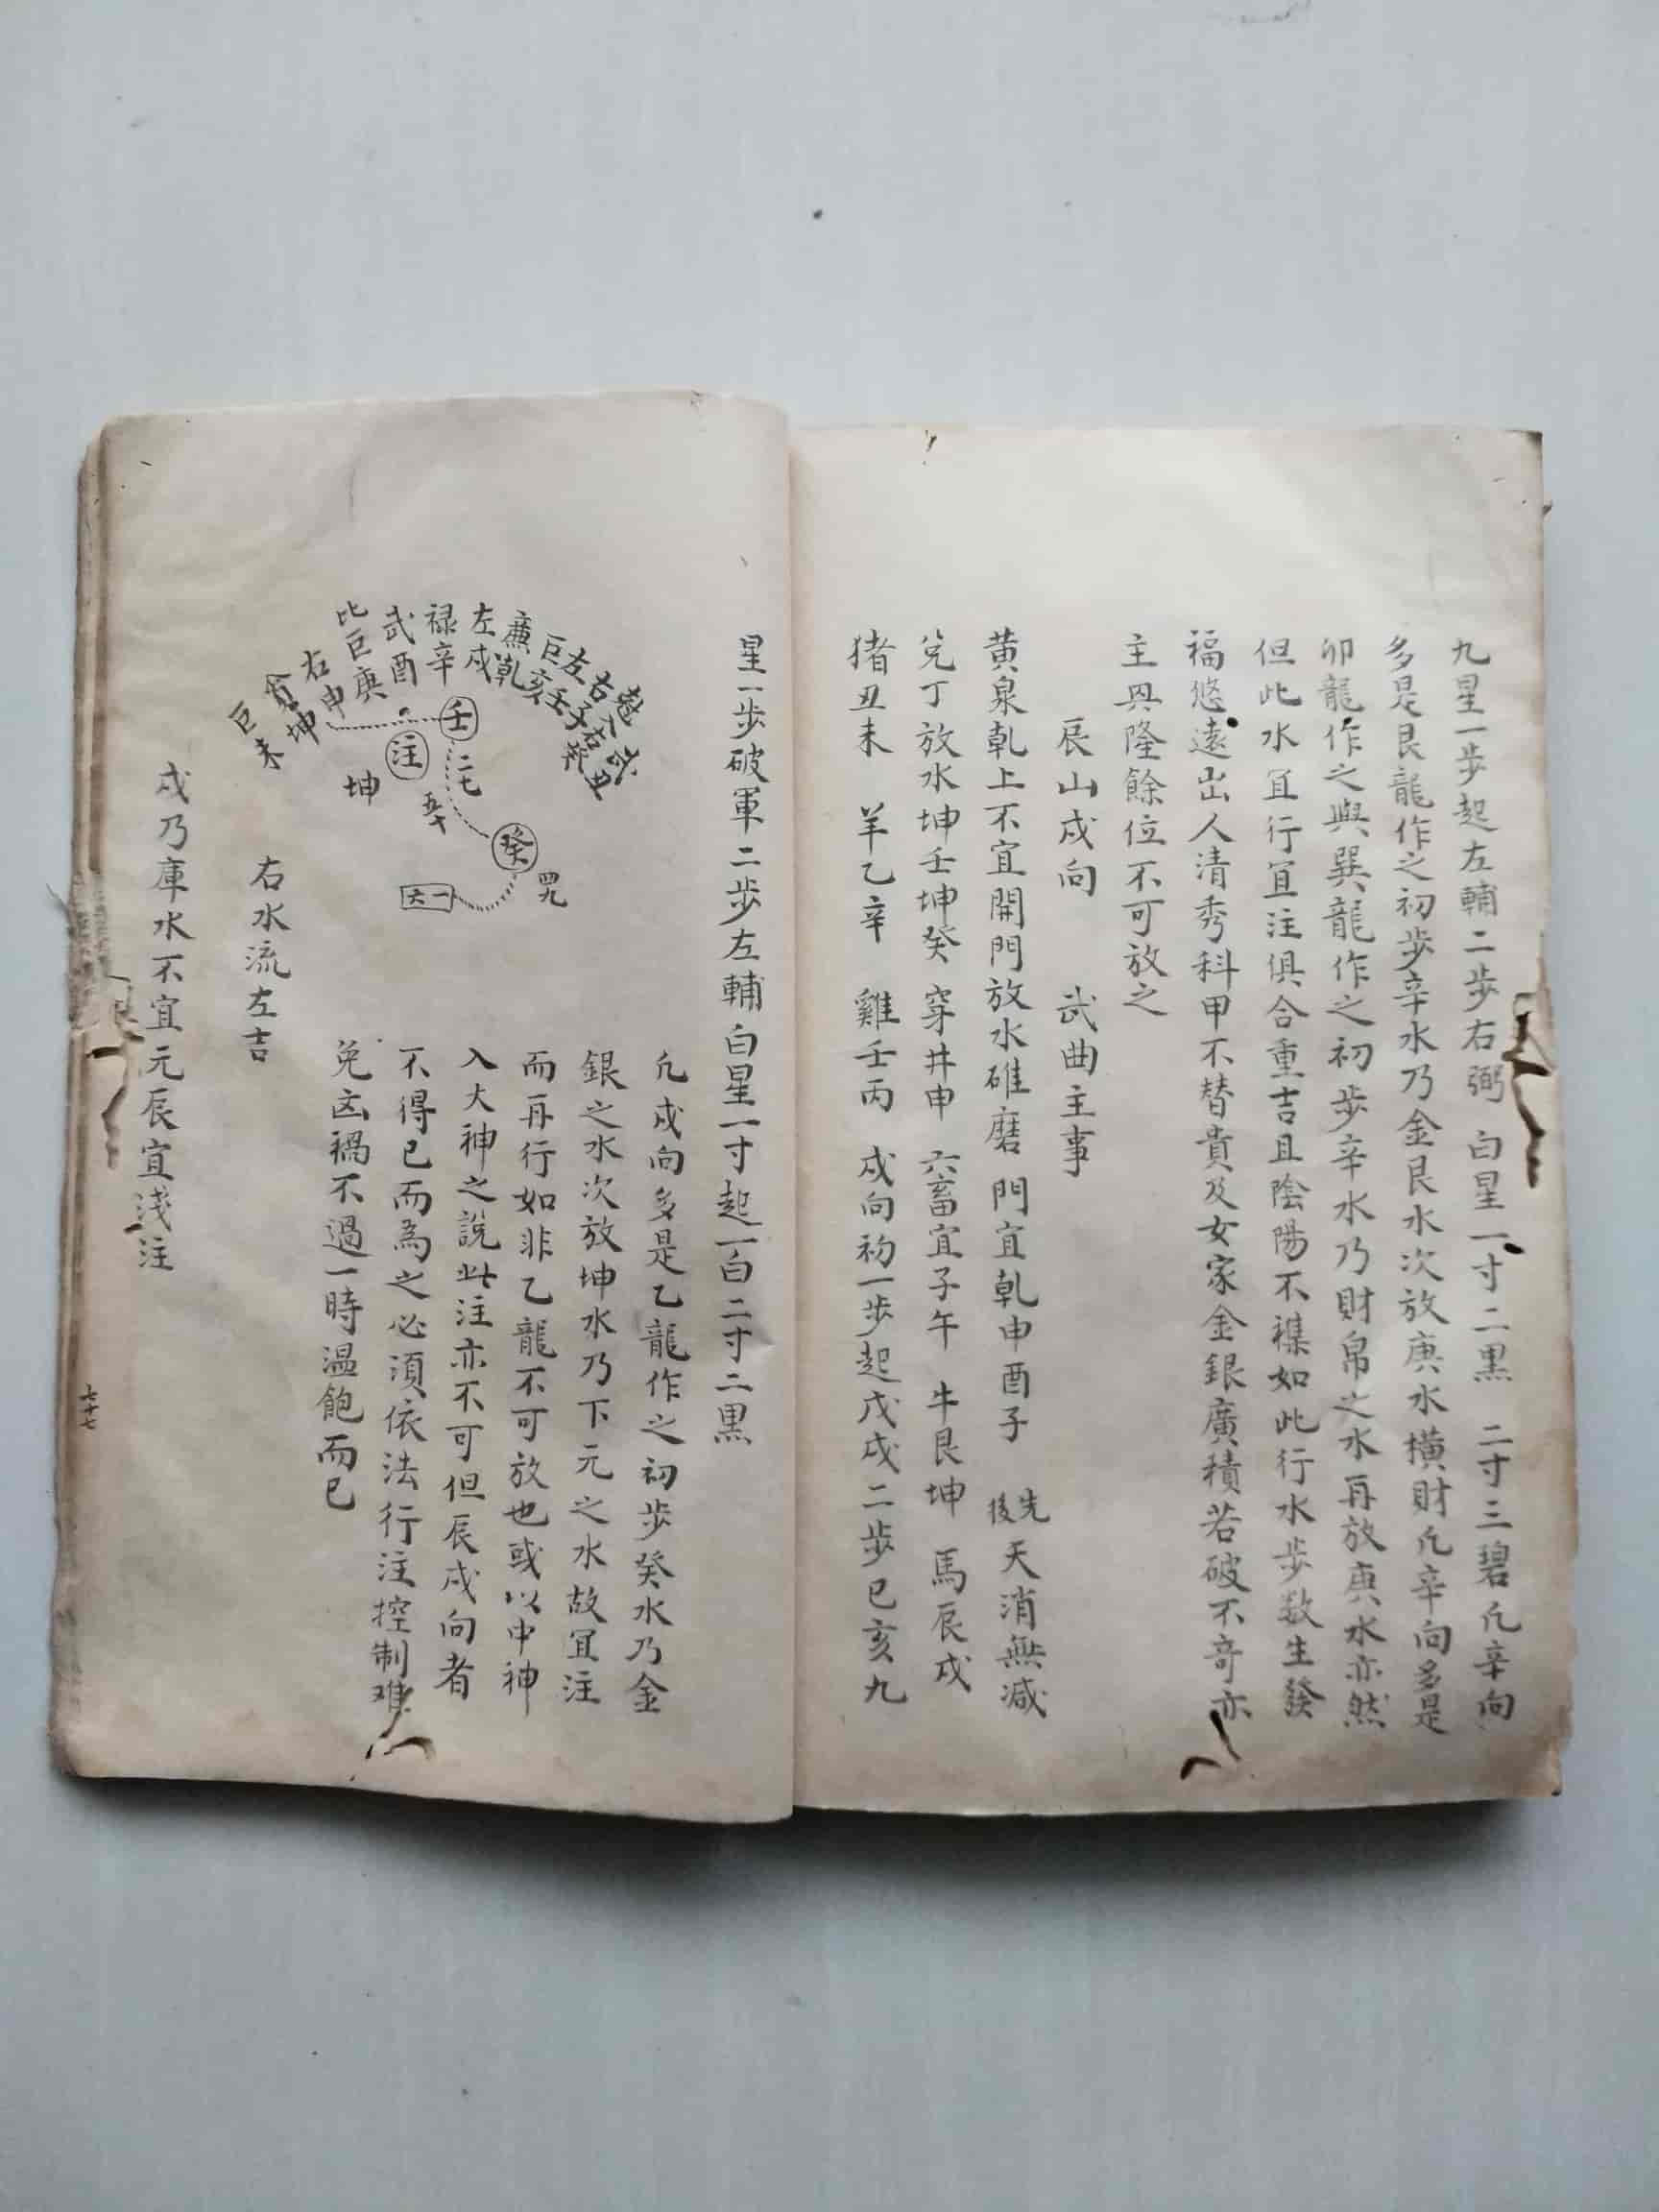 九星一步起左輔二步右弼 白星一寸二黒 二寸三碧凢辛向
多是艮龍作之初步辛水乃金艮水次放庚水横財凢辛向多是
卯龍作之與巽龍作之初步辛水乃財帛之水再放庚水亦然
但此水宜行宜注俱合重吉且陰陽不襍如此行水步数生發
福悠遠出人清秀科甲不替貴及女家金銀廣積若破不奇亦
主興隆餘位不可放之
辰山戍向 武曲主事
黄泉乹上不宜開門放水碓磨 門宜乹申酉子 先後天消無减
兌丁放水坤壬坤癸 穿井申 六畜宜子午 牛艮坤 馬辰戍
猪丑未 羊乙辛 雞壬丙 戍向初一步起戊戍二步已亥九
星一步破軍二步左輔白星一寸起一白二寸二黒
凢戍向多是乙龍作之初步癸水乃金
銀之水次放坤水乃下元之水故冝注
而再行如非乙龍不可放也或以中神
入大神之說此注亦不可但辰戍向者
不得已而為之必須依法行注控制难
免凶禍不過一時温飽而已
巨未
坤
右申
比巨庚
武酉
禄辛
左戍
亷乹
巨亥
左壬
右子
武丑
壬
注
二七
坤
癸
四九
一六
右水流左吉
戍乃庫水不宜元辰宜淺注
七十七